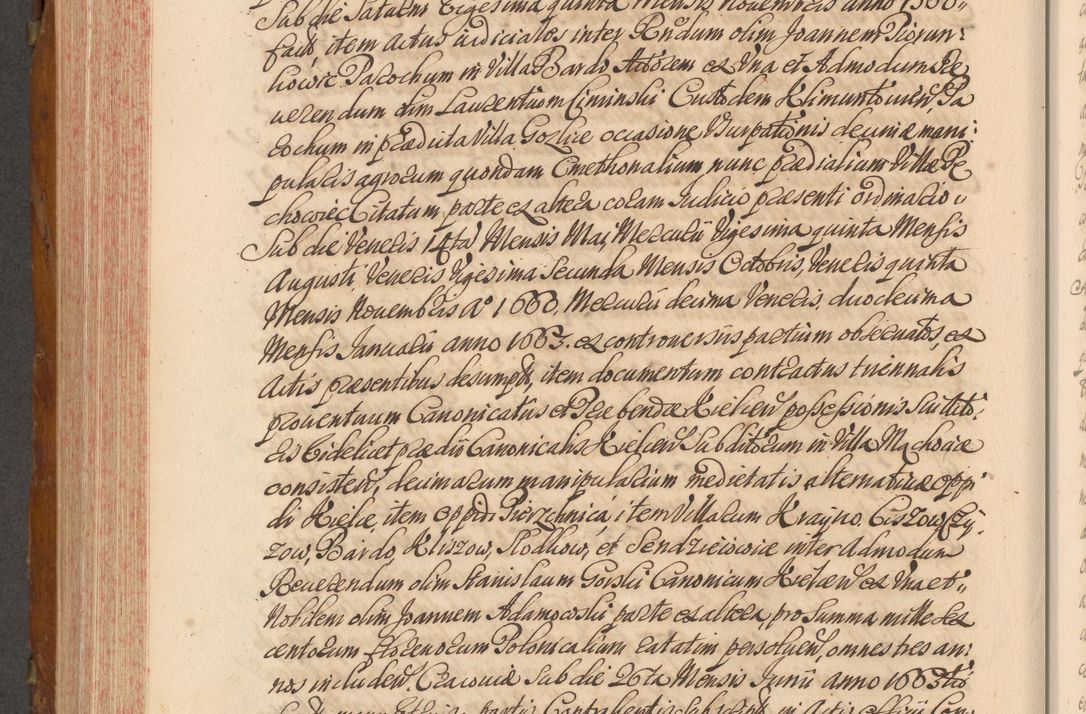 Sub die Saturni Vigesima quinta Mensis Novembris anno 1560
fact, item actus iudiciales inter Rndum olim Joannem Piorun:
kowic Parochum in Villa Bardo Actorem ex Una et Admodum Re
verendum olim Laurentium Ciminski Custodem Klimuntovien, Pa
rochum in prædicta Villa Gozlice occasione Usurpationis decimæ mani:
pularis agrorum quondam Cmethonalium nunc prædialium Villæ Pe
chowiec Citatum parte ex altera coram Judicio præsenti ordinario
Sub die Veneris 14ta Mensis Maj, Mercurii Vigesima quinta Mensis
Augusti, Veneris Vigesima Secunda Mensis Octobris, Veneris quinta
Mensis Novembris Ao 1660, Mercurii decima Veneris, duodecima
Mensis Januarii anno 1663. ex controversiis partium observatos, ex
Actis præsentibus desumpt, item documentum contractus triennalis
proventuum Canonicatus et Præbendæ Kielcen possessionis Sui teto:
ris Videlicet prædii Canonicalis Kielcen Subditorum in Villa Machocie
consisten, decimarum manipularium medietatis alternativæ oppi
di Kielce, item oppidi Pierzchnica, item Villarum Krayno, Ciszow, Czy,
zow, Bardo, Kliszow, Slodkow, et Sendzieiowice inter Admodum
Reverendum olim Stanislaum Gorski Canonicum Kielcen ex Una et
Nobilem olim Joannem Adamowski parte ex altera, pro Summa mille du
centorum florenorum Polonicalium ratatim persolven, omnes tres an:
nos includen. Cracoviæ Sub die 26ta Mensis Junii anno 1663tio